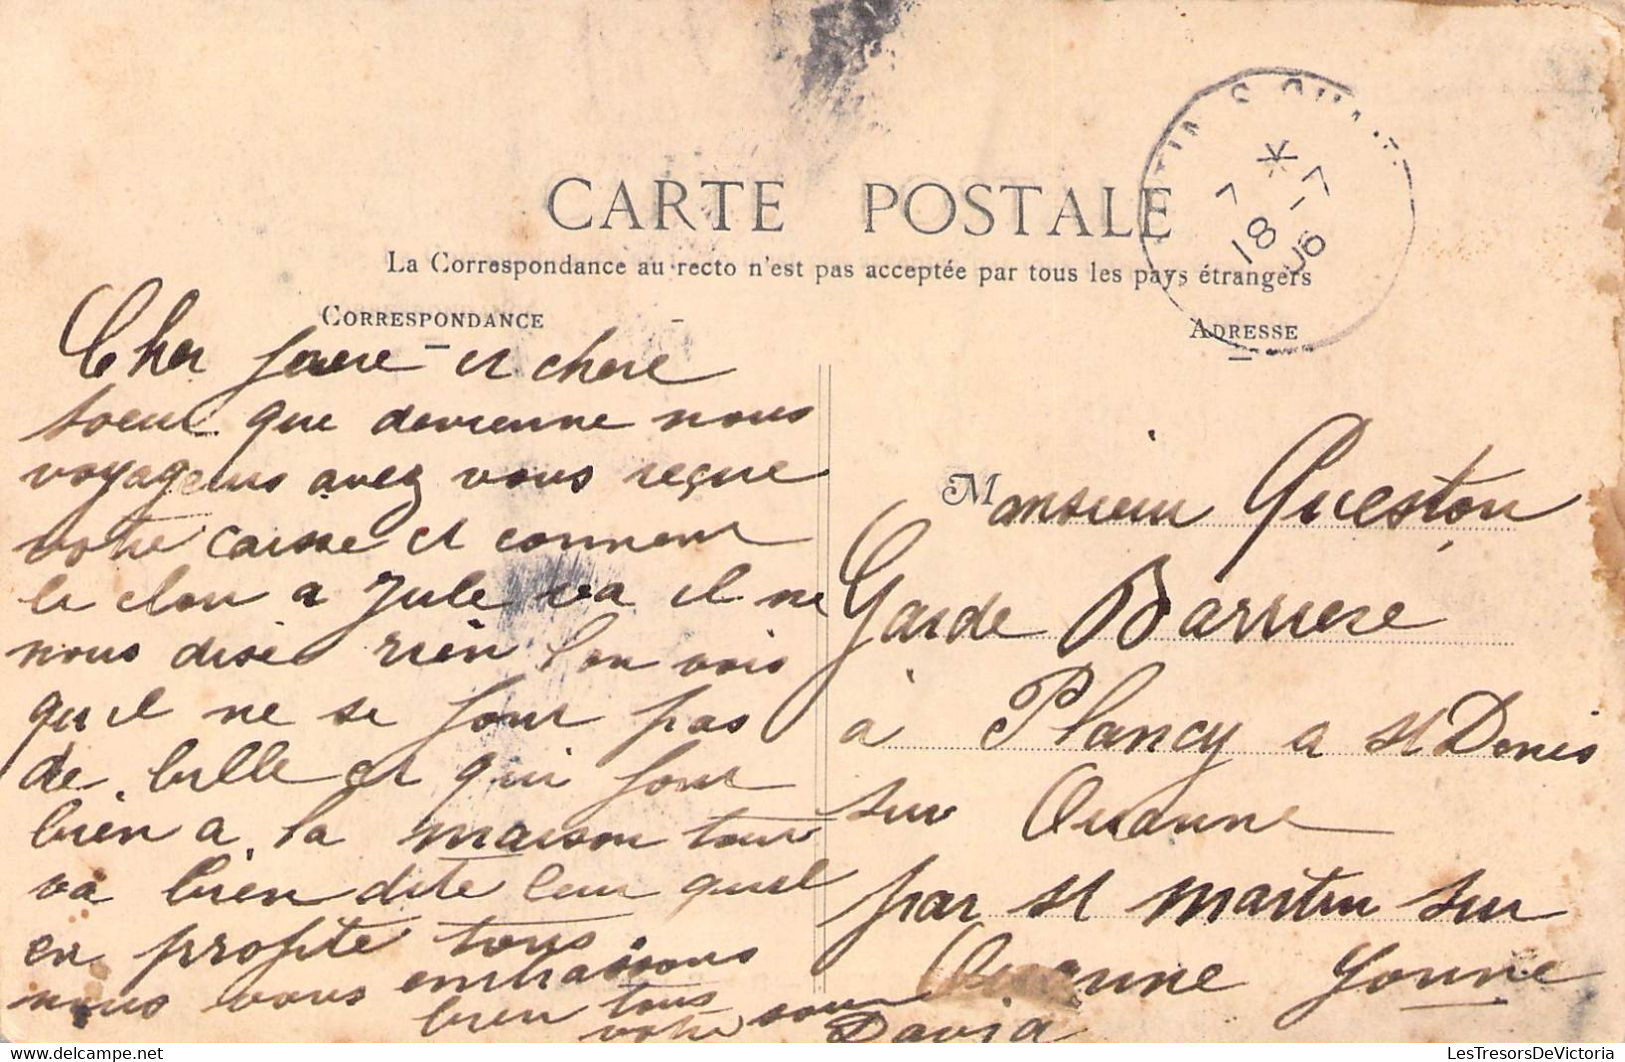 CARTE POSTALE
La Correspondance au recto n'est pas acceptée par tous les pays étrangers
CORRESPONDANCE
ADRESSE
7
18 - 7
06
Cher et chere
soeur que devienne nous
voyageurs avez vous reçue
votre caisse et comment
le clou a Jule va il ne
nous dise rien l'on vois
qu'il ne se font pas
de bille et qui sont
bien a la maison tout
va bien dite leur quel
en profite tous
nous vous embrassons
bien tous
votre soeur
David
Monsieur Queston
Garde Barriere
à Plancy a st Denis
sur Ouanne
par st martin sur
Ouanne Yonne
LesTresorsDeVictoria